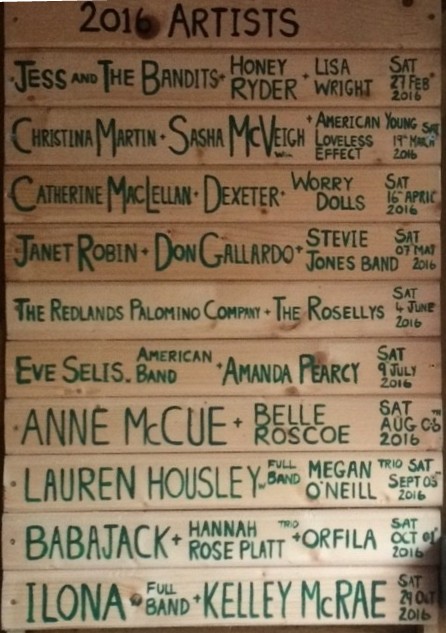 2016 ARTISTS
JESS AND THE BANDITS + HONEY RYDER + LISA WRIGHT SAT 27 FEB 2016
CHRISTINA MARTIN + SASHA MCVEIGH + AMERICAN YOUNG LOVELESS EFFECT SAT 19TH MARCH 2016
CATHERINE MACLELLAN + DEXETER + WORRY DOLLS SAT 16TH APRIL 2016
JANET ROBIN + DON GALLARDO + STEVIE JONES BAND SAT 07 MAY 2016
THE REDLANDS PALOMINO COMPANY + THE ROSELLYS SAT 4 JUNE 2016
EVE SELIS. AMERICAN BAND + AMANDA PEARCY SAT 9 JULY 2016
ANNE McCUE + BELLE ROSCOE SAT AUG 06TH 2016
LAUREN HOUSLEY FULL BAND MEGAN O'NEILL TRIO SAT SEPT 03 2016
BABAJACK + HANNAH ROSE PLATT TRIO + ORFILA SAT OCT 01 2016
ILONA FULL BAND + KELLEY McRAE SAT 29 OCT 2016